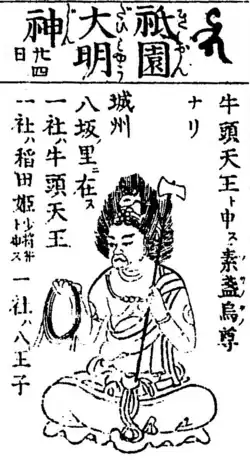 祇園
大明
神
廿四
日
牛頭天王ト申ス素盞烏尊
ナリ
城州
八坂ノ里ニ在ス
一社ハ牛頭天王
一社ハ稲田姫 一社ハ八王子